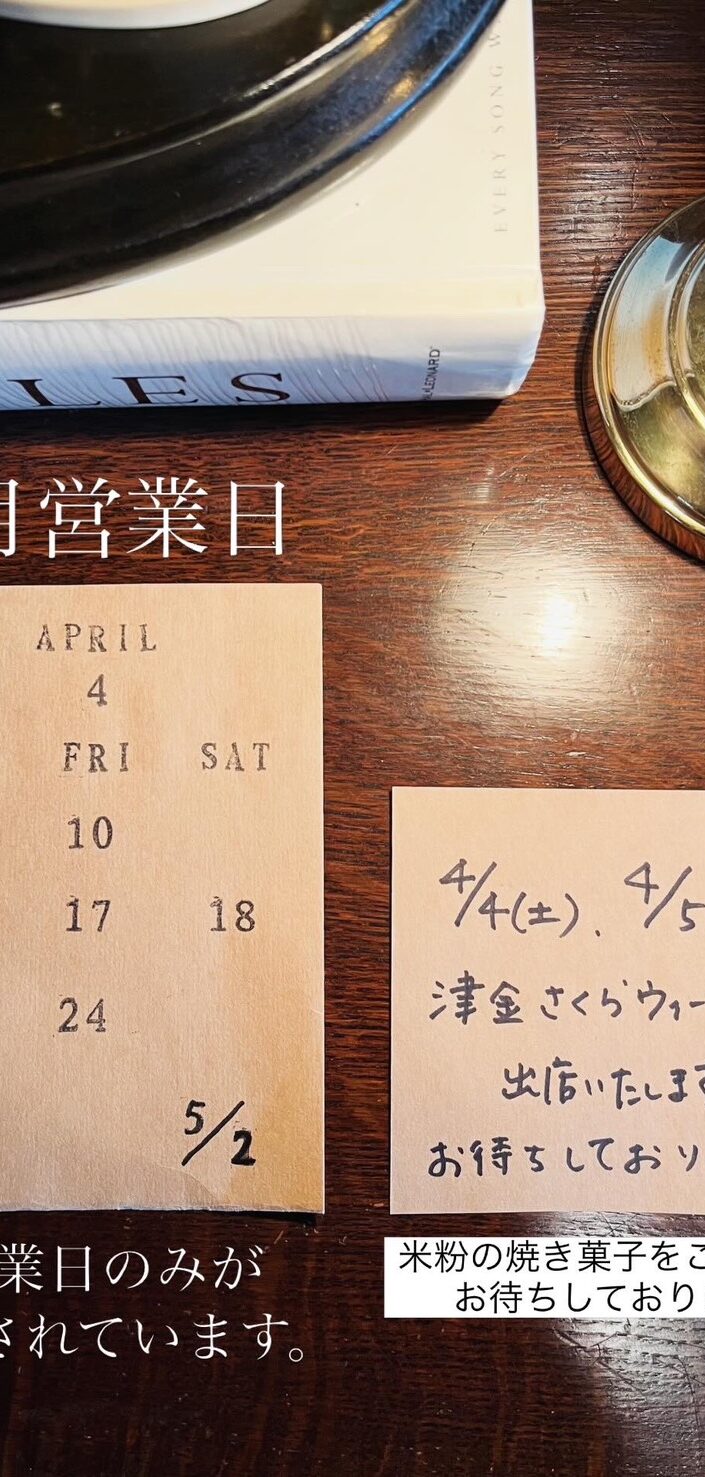 EVERY SONG W
LES
LEONARD
月営業日
APRIL
4
FRI SAT
10
17 18
24
5/2
業日のみが
されています。
4/4(土)、4/5
津金さくらウィー
出店いたします
お待ちしており
米粉の焼き菓子をご
お待ちしており